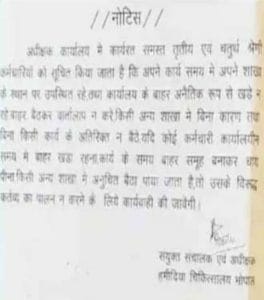 //नोटिस//
अधीक्षक कार्यालय मे कार्यरत समस्त तृतीय एवं चतुर्थ श्रेणी
कर्मचारियों को सूचित किया जाता है कि अपने कार्य समय मे अपने शाखा
के स्थान पर उपस्थित रहे,तथा कार्यालय के बाहर अनैतिक रूप से खड़े न
रहे,बाहर बैठकर वार्तालाप न करे,किसी अन्य शाखा मे बिना कारण तथा
बिना किसी कार्य के अतिरिक्त न बैठे,यदि कोई कर्मचारी कार्यालयीन
समय मे बाहर खडा रहना,कार्य के समय बाहर समूह बनाकर चाय
पीना,किसी अन्य शाखा मे अनुचित बैठा पाया जाता है,तो उसके विरूद्ध
कर्तव्य का पालन न करने के लिये कार्यवाही की जावेगी।
सयुक्त संचालक एवं अधीक्षक
हमीदिया चिकित्सालय भोपाल